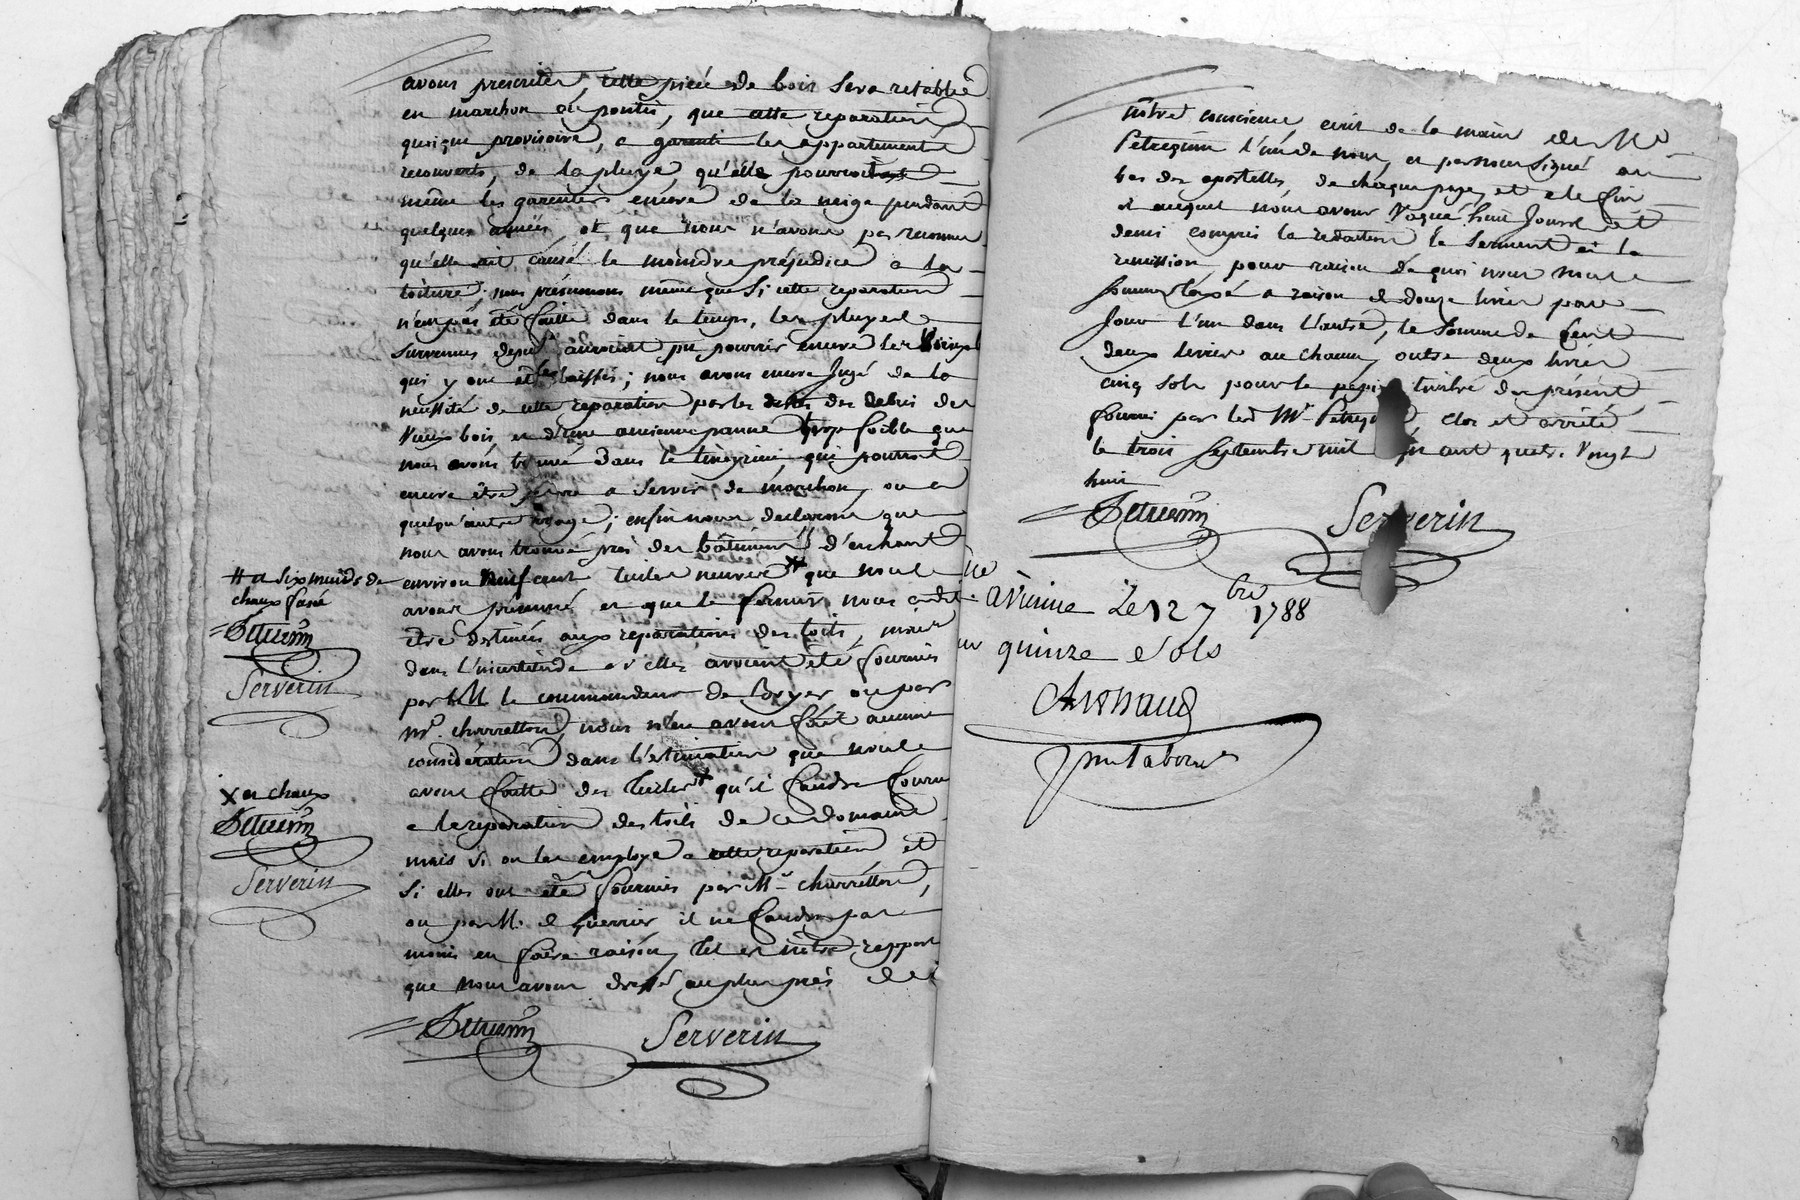 avons prescrites, cette piece de bois sera retablie
en marchon ou pontis, que cette reparation
quoique provisoire, a garanti les appartements
recouverts, de la pluye, qu'elle pourroit
même les garentir encore de la neige pendant
quelques années, et que nous n'avons pas reconnu
qu'elle ait causé le moindre préjudice a la
toiture; nous présumons même que si cette reparation
n'eut pas été faitte dans le temps, les pluyes
survenues depuis auroient pu pourrir encore les
qui y ont été laissés; nous avons encore jugé de la
necessité de cette reparation par les des debris des
vieux bois, et d'une ancienne panne trop foible que
nous avons trouvée dans le qui pourroit
encore être a servir de marchon, ou a
quelqu'autre usage; enfin nous declarons que
nous avons trouvé près des bâtiments d'enhaut
environ neuf cent tuiles neuves # que nous
avons présumé, et que le fermier nous a dit
être destinées aux reparations des toits, mais
dans l'incertitude si elles avoient été fournies
par M. le commandeur de ou par
Mr. charretton, nous n'en avons fait aucune
considération dans l'estimation que nous
avons faitte des tuiles X qu'il faudra fournir
a la reparation des toits de ce domaine
mais si on les employe a cette reparation et
si elles ont été fournies par Mr. charretton,
ou par M. de Guerrier, il ne faudra pas
moins en faire raison, tel est nôtre rapport
que nous avons dressé au plus près de
Petrequin Serverin
# et six muids de
chaux fusée
Petrequin
Serverin
X et chaux
Petrequin
Serverin
nôtre conscience ecrit de la main de Me
Petrequin l'un de nous, et par nous signé au
bas des apostilles, de chaque page, et a la fin
et auquel nous avons vaqué huit jours et
demi compris la redaction le serment et la
remission, pour raison de quoi nous nous
sommes taxé a raison de douze livres par
jour l'un dans l'autre, la somme de cent
deux livres au chacun, outre deux livres
cinq sols pour le papier timbré du présent
fourni par led. Mr. Petrequin, clos et arrêté
le trois septembre mil sept cent quatre vingt
huit
Petrequin Serverin
a vienne Le 12 7bre 1788
quinze sols
Arnaud